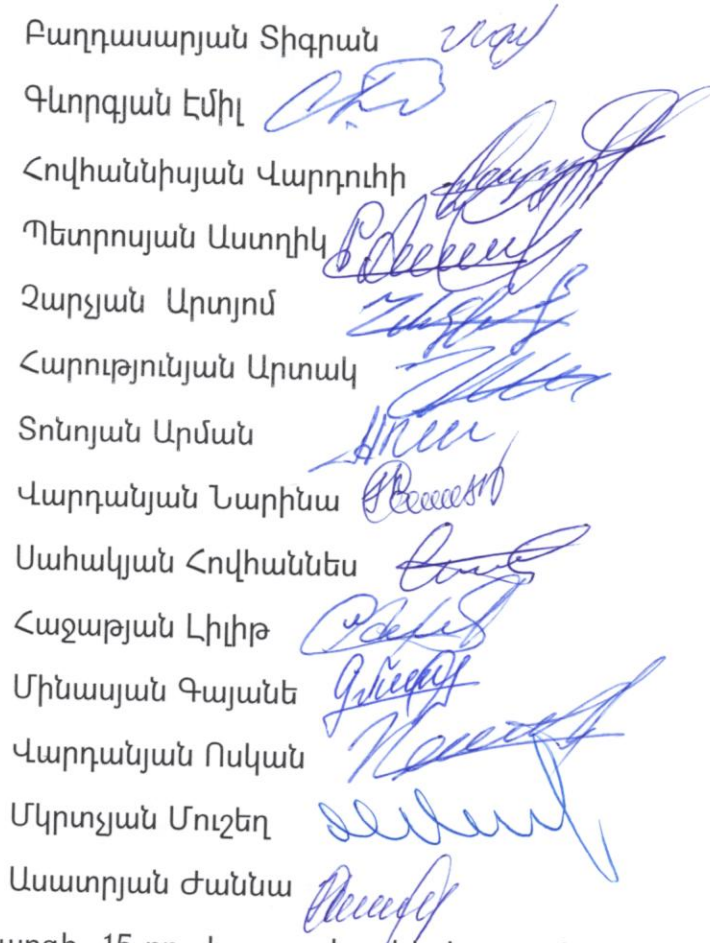 Բաղդասարյան Տիգրան
Գևորգյան Էմիլ
Հովհաննիսյան Վարդուհի
Պետրոսյան Աստղիկ
Չարչյան Արտյոմ
Հարությունյան Արտակ
Տոնոյան Արման
Վարդանյան Նարինա
Սահակյան Հովհաննես
Հաջաթյան Լիլիթ
Մինասյան Գայանե
Վարդանյան Ոսկան
Մկրտչյան Մուշեղ
Ասատրյան Ժաննա
15